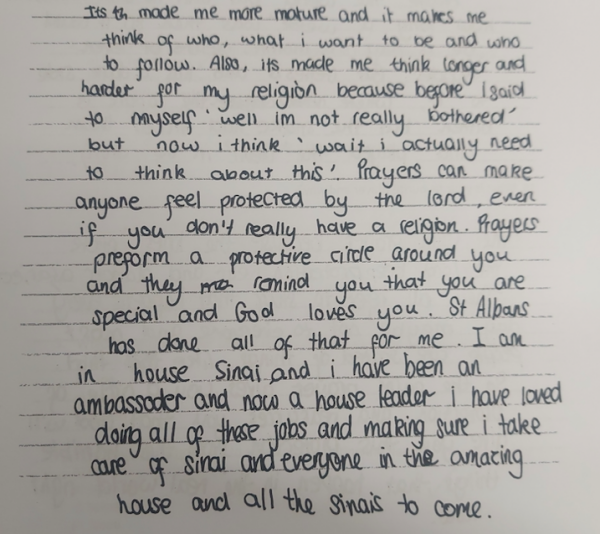 Its th made me more mature and it makes me
think of who, what i want to be and who
to follow. Also, its made me think longer and
harder for my religion because before I said
to myself 'well im not really bothered'
but now i think 'wait i actually need
to think about this'. Prayers can make
anyone feel protected by the lord, even
if you don't really have a religion. Prayers
preform a protective circle around you
and they remind you that you are
special and God loves you. St Albans
has done all of that for me. I am
in house Sinai and i have been an
ambassoder and now a house leader i have loved
doing all of these jobs and making sure i take
care of sinai and everyone in the amazing
house and all the sinais to come.